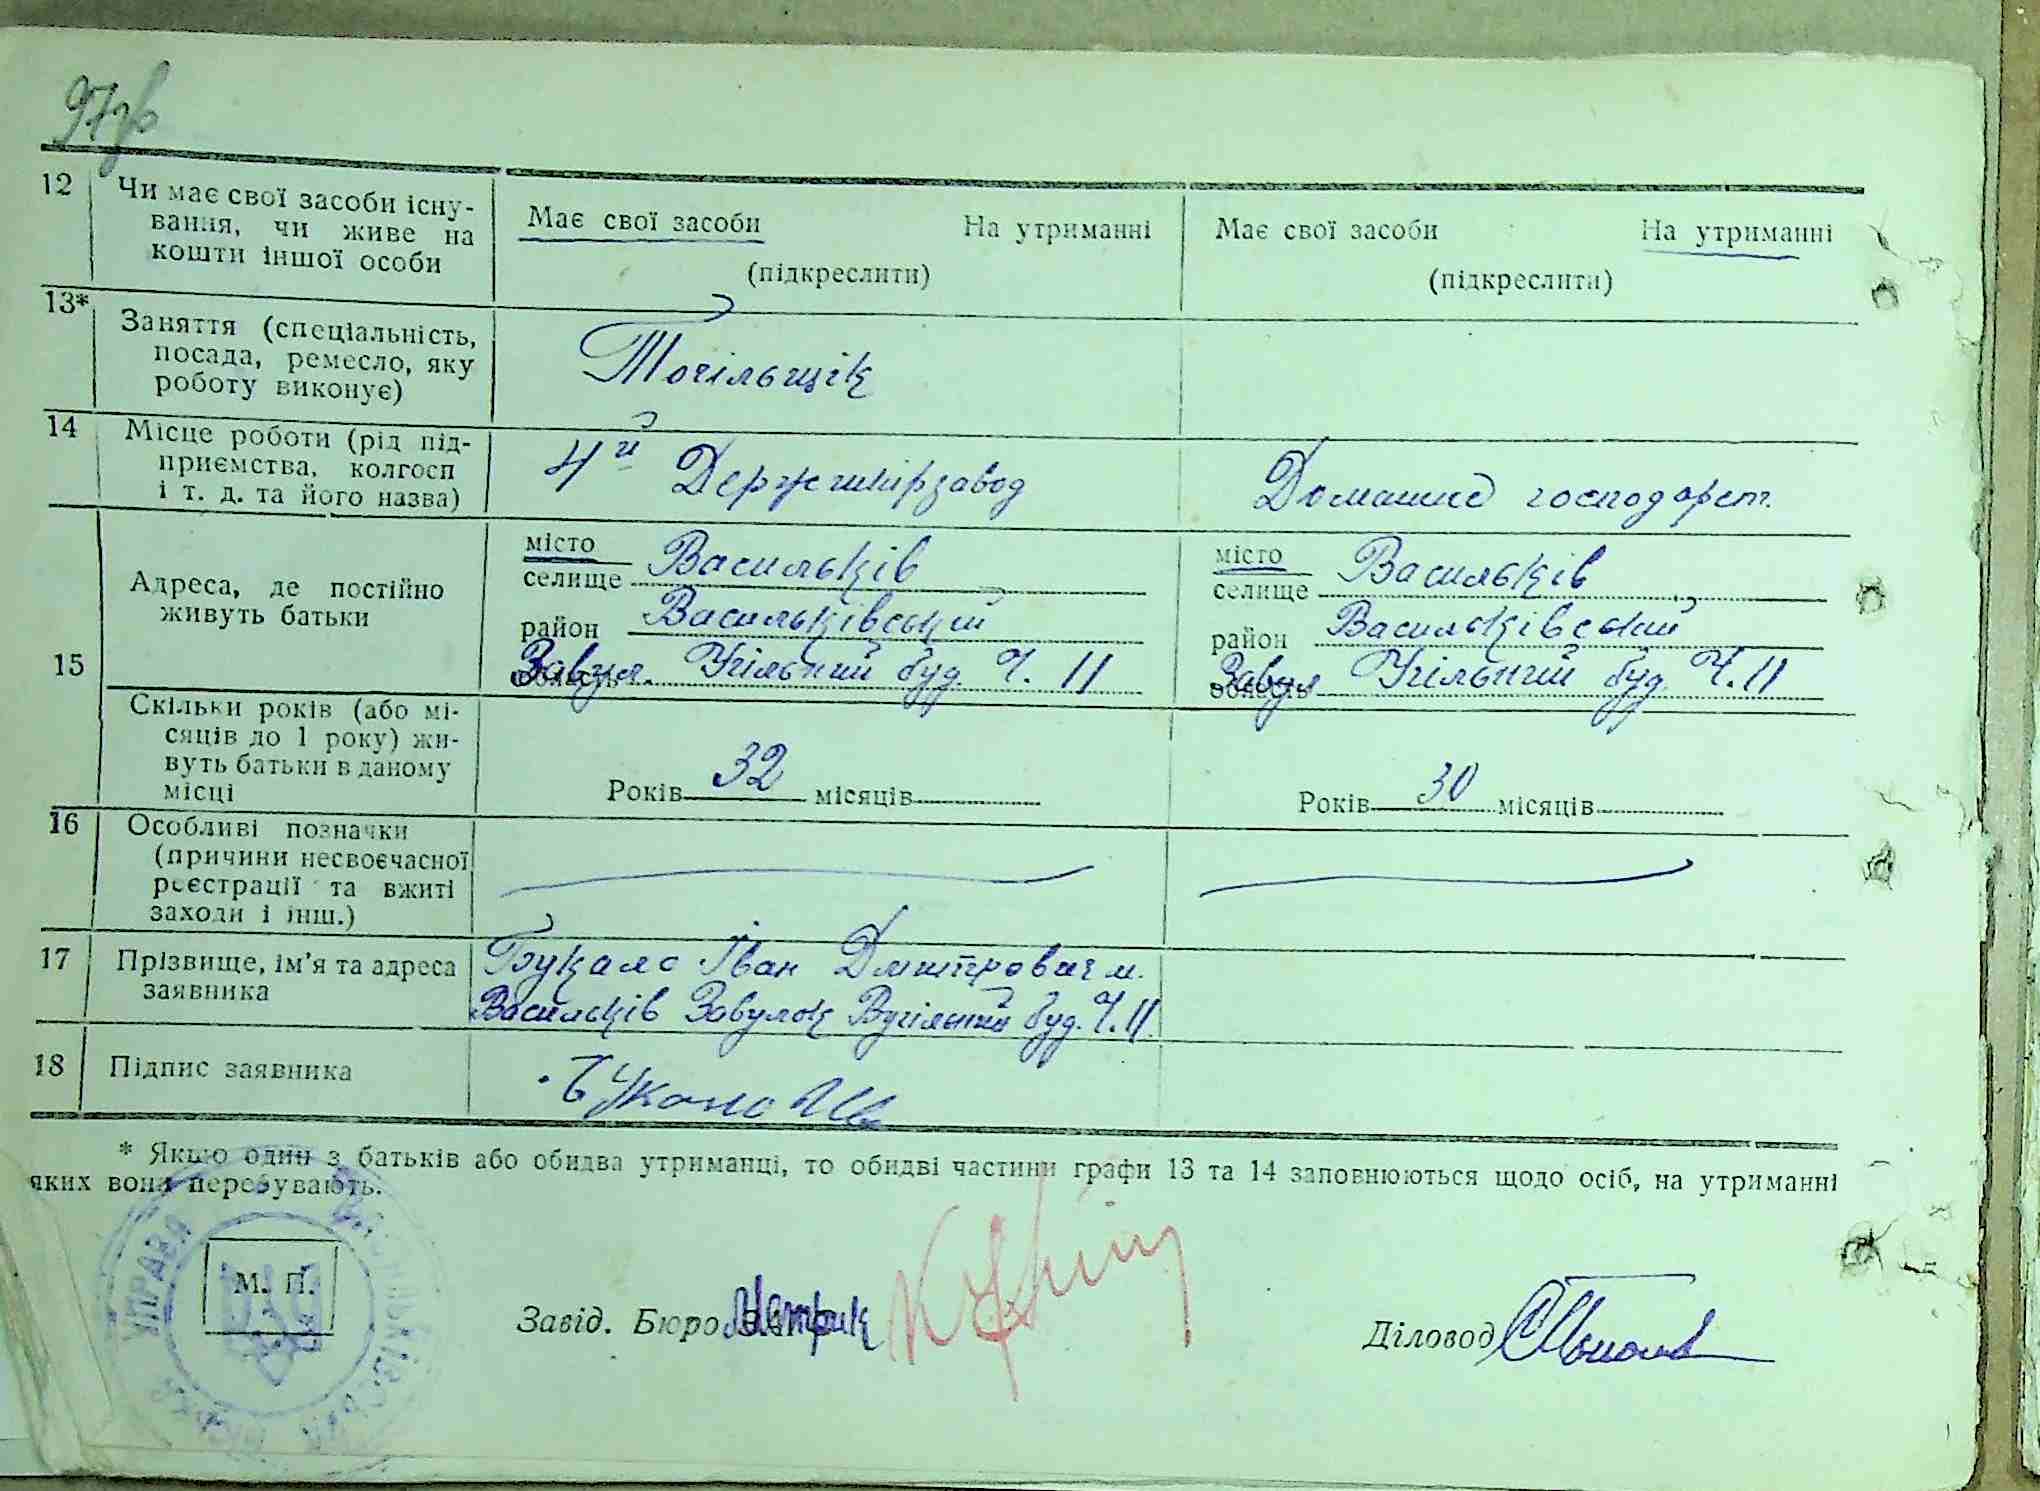 97зв
12 Чи має свої засоби існу-
вання, чи живе на
кошти іншої особи
Має свої засоби На утриманні
(підкреслити)
Має свої засоби На утриманні
(підкреслити)
13* Заняття (спеціальність,
посада, ремесло, яку
роботу виконує)
Точільщік
14 Місце роботи (рід під-
приємства, колгосп
і т. д. та його назва)
4й Держшкірзавод
Домашнє господарст.
15 Адреса, де постійно
живуть батьки
місто Васильків
селище
район Васильківський
Завул. Угільний буд. Ч. 11
місто Васильків
селище
район Васильківський
Завул Угільний буд. Ч. 11
Скільки років (або мі-
сяців до 1 року) жи-
вуть батьки в даному
місці
Років 32 місяців
Років 30 місяців
16 Особливі позначки
(причини несвоєчасної
реєстрації та вжиті
заходи і інш.)
17 Прізвище, ім'я та адреса
заявника
Букало Іван Дмитрович м.
Васильків Завулок Вугільний буд. Ч. 11.
18 Підпис заявника
Букало Ив
* Якщо один з батьків або обидва утриманці, то обидві частини графи 13 та 14 заповнюються щодо осіб, на утриманні
яких вони перебувають.
УПРАВА
М. П.
Завід. Бюро Метрик
Діловод